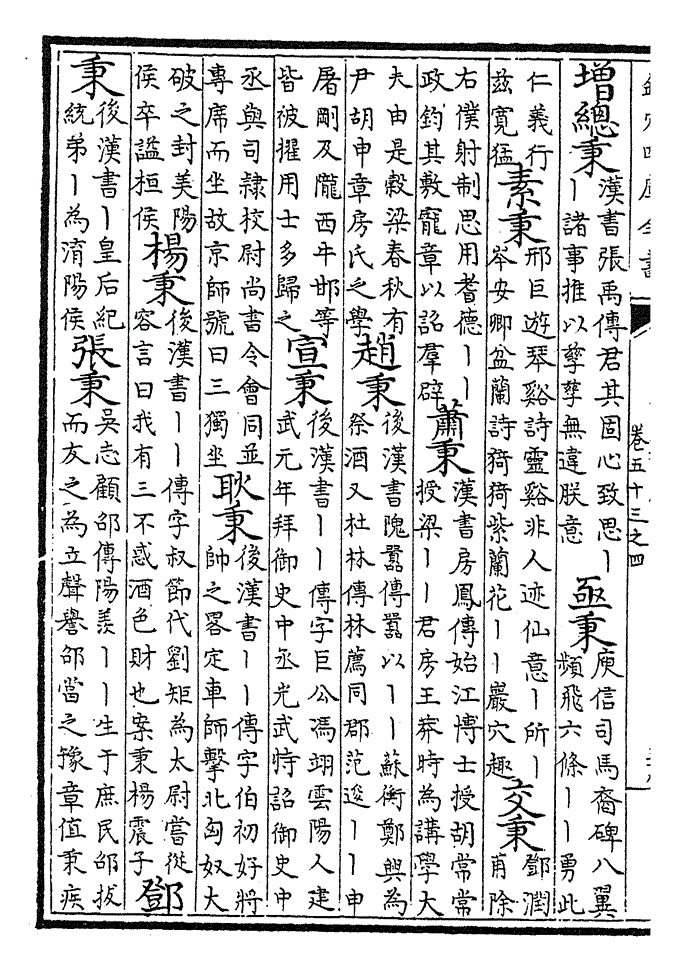 卷五十三之四
增總秉
漢書張禹傳君其固心致思丨
丨諸事推以孳孳無違朕意
亟秉
庾信司馬裔碑八翼
頻飛六條丨丨勇此
仁義行
茲寛猛
素秉
邢巨遊琴谿詩靈谿非人迹仙意丨所丨
岑安卿盆蘭詩猗猗紫蘭花丨丨巖穴趣
交秉
鄧潤
甫除
右僕射制思用耆德丨丨
政鈞其敷寵章以詔羣辟
蕭秉
漢書房鳳傳始江博士授胡常常
授梁丨丨君房王莽時為講學大
夫由是穀梁春秋有
尹胡申章房氏之學
趙秉
後漢書隗囂傳囂以丨丨蘇衡鄭興為
祭酒又杜林傳林薦同郡范逡丨丨申
屠剛及隴西牛邯等
皆被擢用士多歸之
宣秉
後漢書丨丨傳字巨公馮翊雲陽人建
武元年拜御史中丞光武特詔御史中
丞與司隸校尉尚書令會同並
專席而坐故京師號曰三獨坐
耿秉
後漢書丨丨傳字伯初好將
帥之畧定車師擊北匈奴大
破之封美陽
侯卒諡桓侯
楊秉
後漢書丨丨傳字叔節代劉矩為太尉嘗從
容言曰我有三不惑酒色財也案秉楊震子
鄧
秉
後漢書丨皇后紀
統弟丨為淯陽侯
張秉
吳志顧邵傳陽羨丨丨生于庶民邵拔
而友之為立聲譽邵當之豫章值秉疾